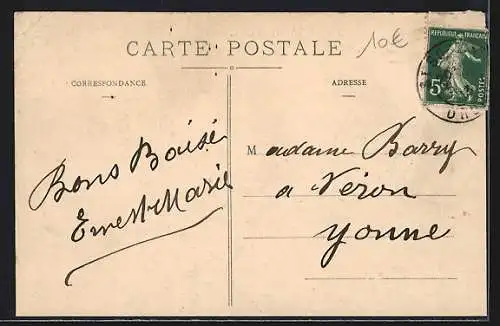 CARTE POSTALE
10€
REPUBLIQUE FRANÇAISE
5c
POSTES
CORRESPONDANCE
ADRESSE
Bons Baisé
Ernest Marie
Madame Barry
a Véron
Yonne